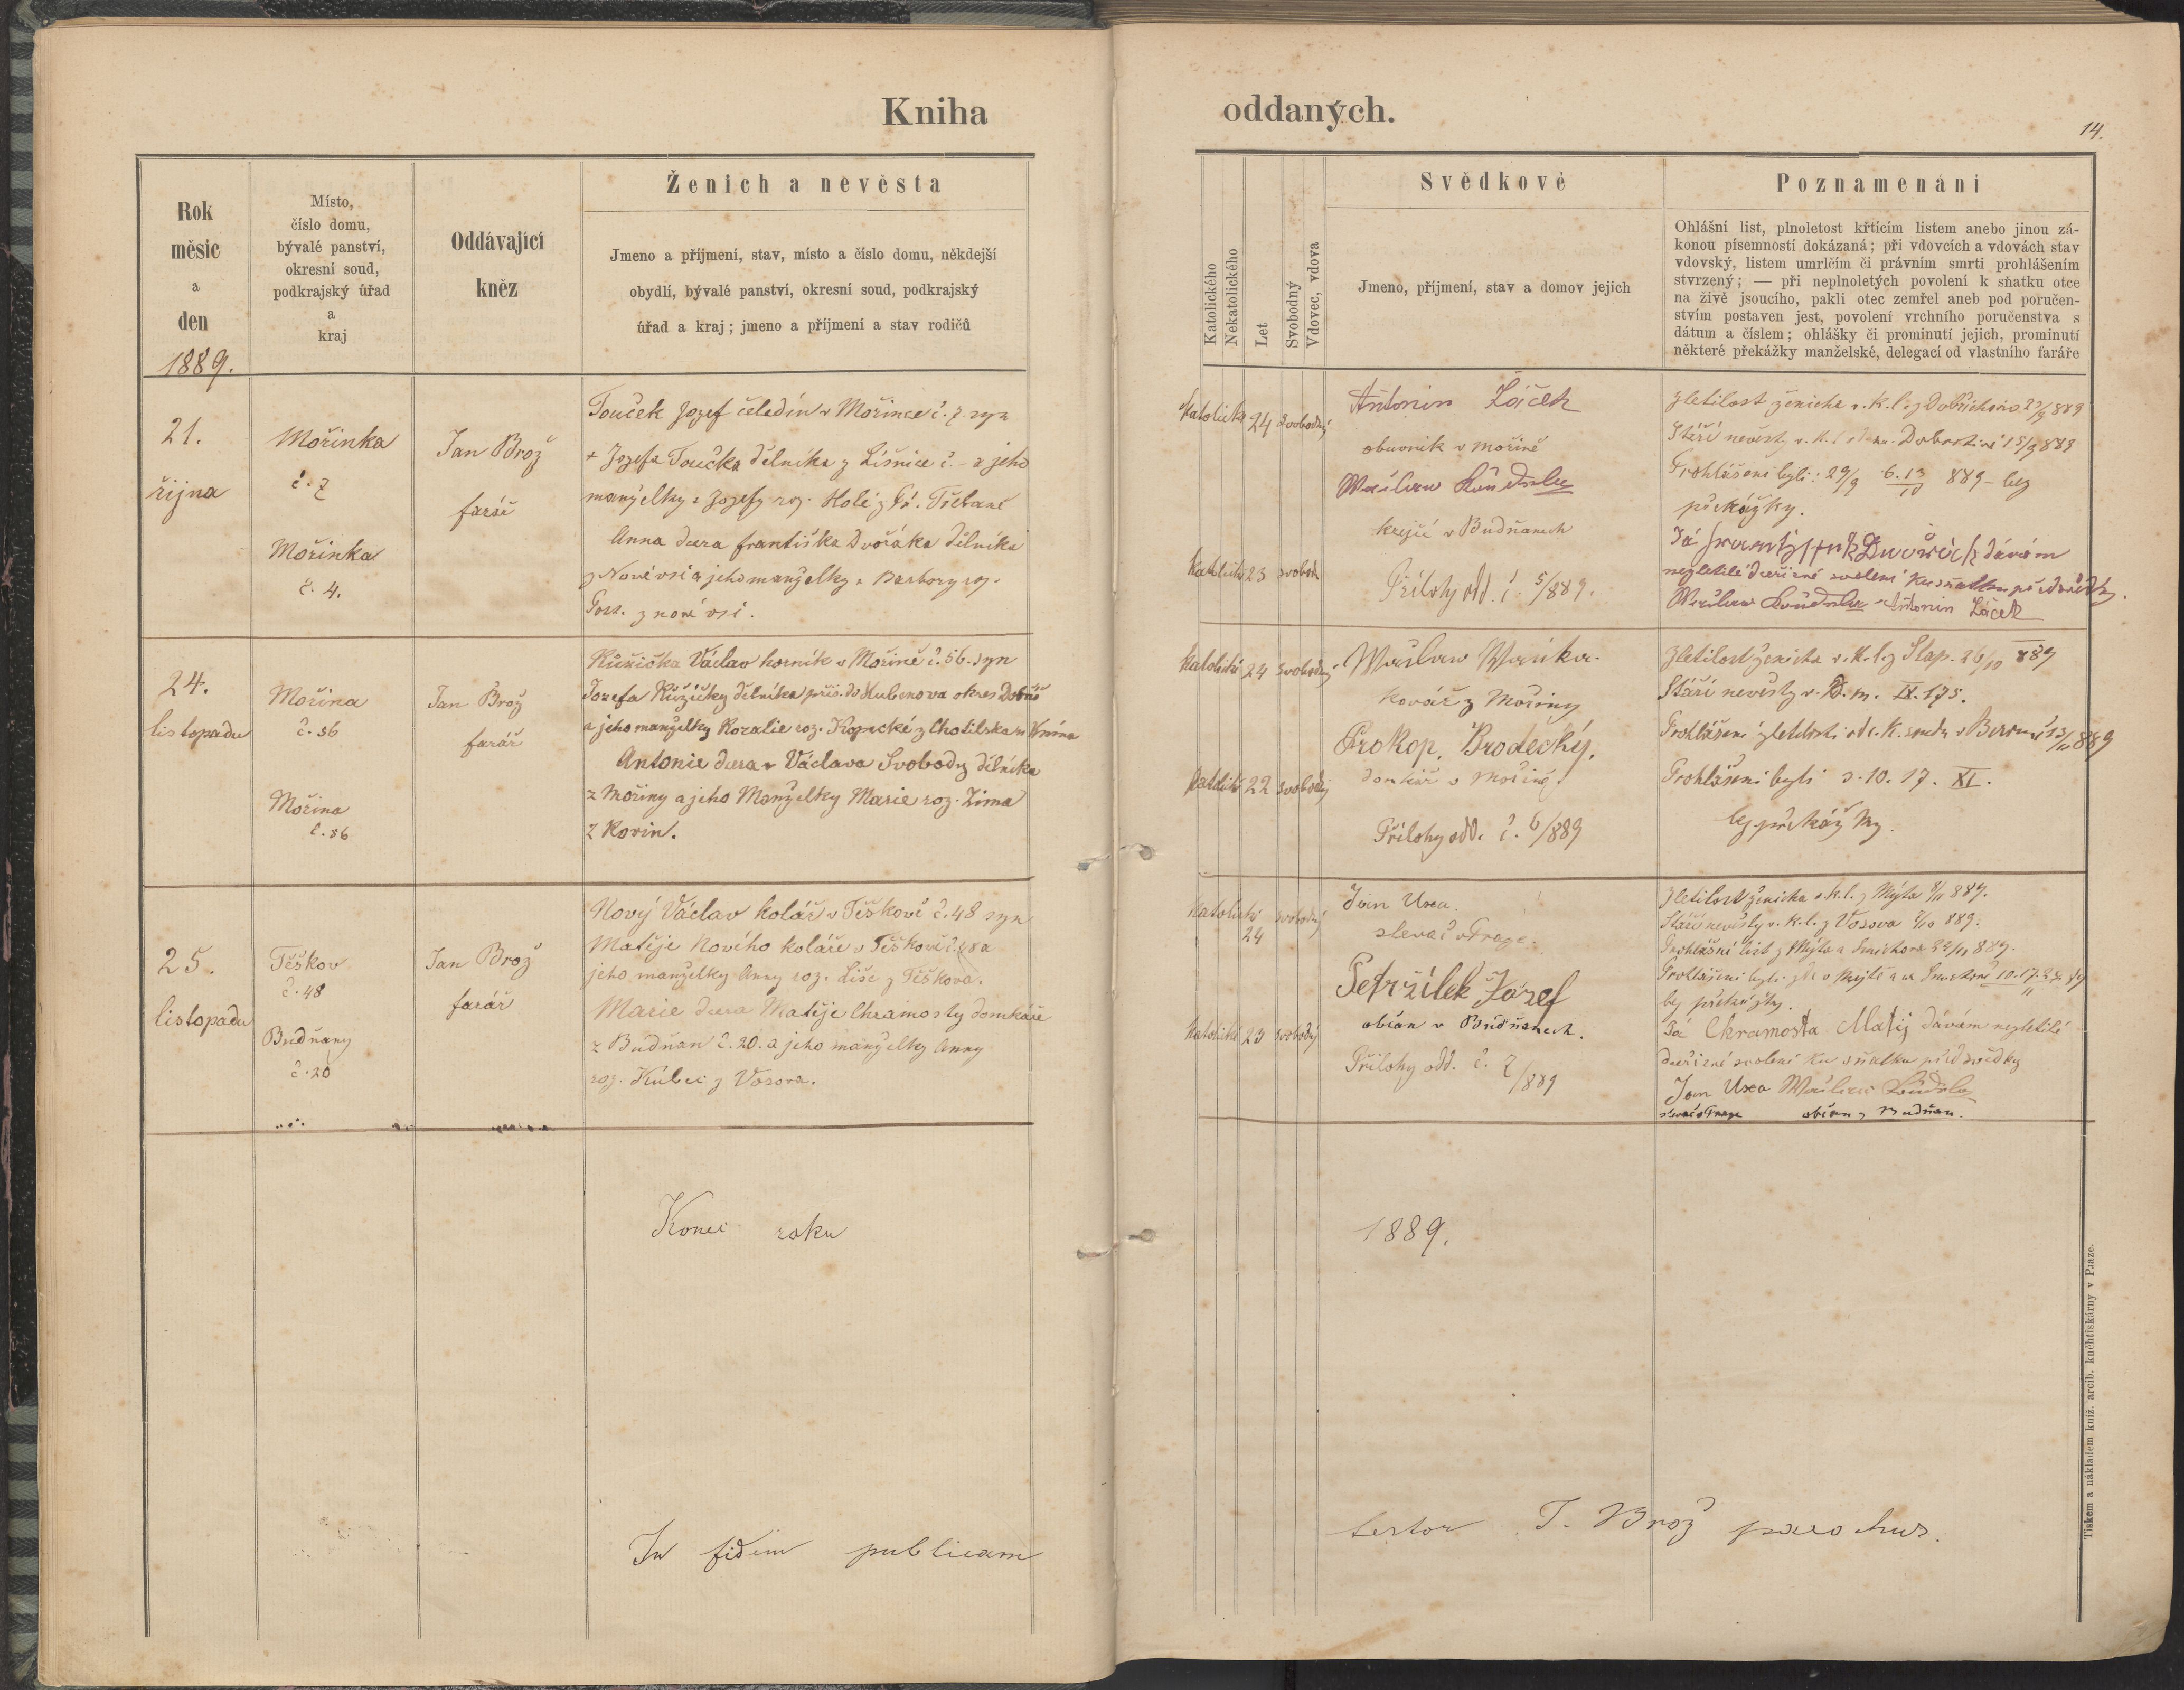 Kniha oddaných.
14.
Rok
měsíc
a
den
1889.
Místo,
číslo domu,
bývalé panství,
okresní soud,
podkrajský úřad
a
kraj
Oddávající
kněz
Ženich a nevěsta
Jmeno a příjmení, stav, místo a číslo domu, někdejší
obydlí, bývalé panství, okresní soud, podkrajský
úřad a kraj; jmeno a příjmení a stav rodičů
Katolického
Nekatolického
Let
Svobodný
Vdovec, vdova
Svědkové
Jmeno, příjmení, stav a domov jejich
Poznamenání
Ohlášní list, plnoletost křtícím listem anebo jinou zá-
konou písemností dokázaná; při vdovcích a vdovách stav
vdovský, listem umrlčím či právním smrti prohlášením
stvrzený; — při neplnoletých povolení k sňatku otce
na živě jsoucího, pakli otec zemřel aneb pod poručen-
stvím postaven jest, povolení vrchního poručenstva s
dátum a číslem; ohlášky či prominutí jejich, prominutí
některé překážky manželské, delegací od vlastního faráře
21.
října
Mořinka
č. 7
Mořinka
č. 4.
Jan Brož
farář
Touček Josef čeledín v Mořince č. 7 syn
+ Josefa Toučka dělníka z Líšnice č. - a jeho
manželky Josefy roz. Holé z Třebané
Anna dcera františka Dvořáka dělníka
z Nové vsi a jeho manželky Barbory roz.
z nové vsi.
Katolické 24 svobodný
Katolické 23 svobod
Antonín Žáček
obuvník v mořině
krejčí v Budňanech
Přílohy odd. č. 5/889.
Zletilost ženicha v. k. l. z Dobřichovic 889
Stáří nevěsty v. 15/9 889
Prohlášeni byli: 29/9 6. 13/10 889 - bez
překážky.
Já Dvořáck dávám
nezletilé dceři mé svolení ku sňatku před svědky.
Antonín Žáček
24.
listopadu
Mořina
č. 56
Mořina
č. 56
Jan Brož
farář
Růžička Václav horník v Mořině č. 56. syn
Josefa Růžičky dělníka přís. do Hubenova okres
a jeho manželky Rozalie roz. Kopecké z
Antonie dcera Václava Svobody dělníka
z Mořiny a jeho Manželky Marie roz. Zima
z Korin.
Katolické 24 svobodný
Katolické 22 svobodný
Václav Vaňka.
Kovář z Mořiny
Prokop. Brodecký.
domkář v Mořině.
Přílohy odd. č. 6/889
Zletilost ženicha v. k. l. z Slap. 26/10 889
Stáří nevěsty v. IX. 175.
Prohlášení zletilosti od c. k. soudu v Berouně 13/11 889
Prohlášeni byli 3. 10. 17. XI.
bez překážky.
25.
listopadu
Těškov
č. 48
Budňany
č. 20
Jan Brož
farář
Nový Václav kolář v Těškově č. 48 syn
Matěje Nového koláře v Těškově č. 48 a
jeho manželky Anny roz. Líše z Těškova.
Marie dcera Matěje Chramosty domkáře
z Budňan č. 20. a jeho manželky Anny
roz. z Vosova.
Katolické 24 svobodný
Katolické 23 svobodný
Jan Uxa.
slevač v Praze.
Petržílek Josef
občan v Budňanech.
Přílohy odd. č. 7/889
Zletilost ženicha v k. l. z Mýta 889.
Stáří nevěsty v. k. l. z Vosova 889.
Prohlášní list z Mýta a 889.
Prohlášeni byli
bez překážky.
Já Chramosta Matěj dávám nezletilé
dceři mé svolení ku sňatku před svědky
Jan Uxa
slevač v Praze občan z Budňan.
Konec roku 1889.
In fidem publicam testor J. Brož parochus.
Tiskem a nákladem kníž. arcib. kněhtiskárny v Praze.